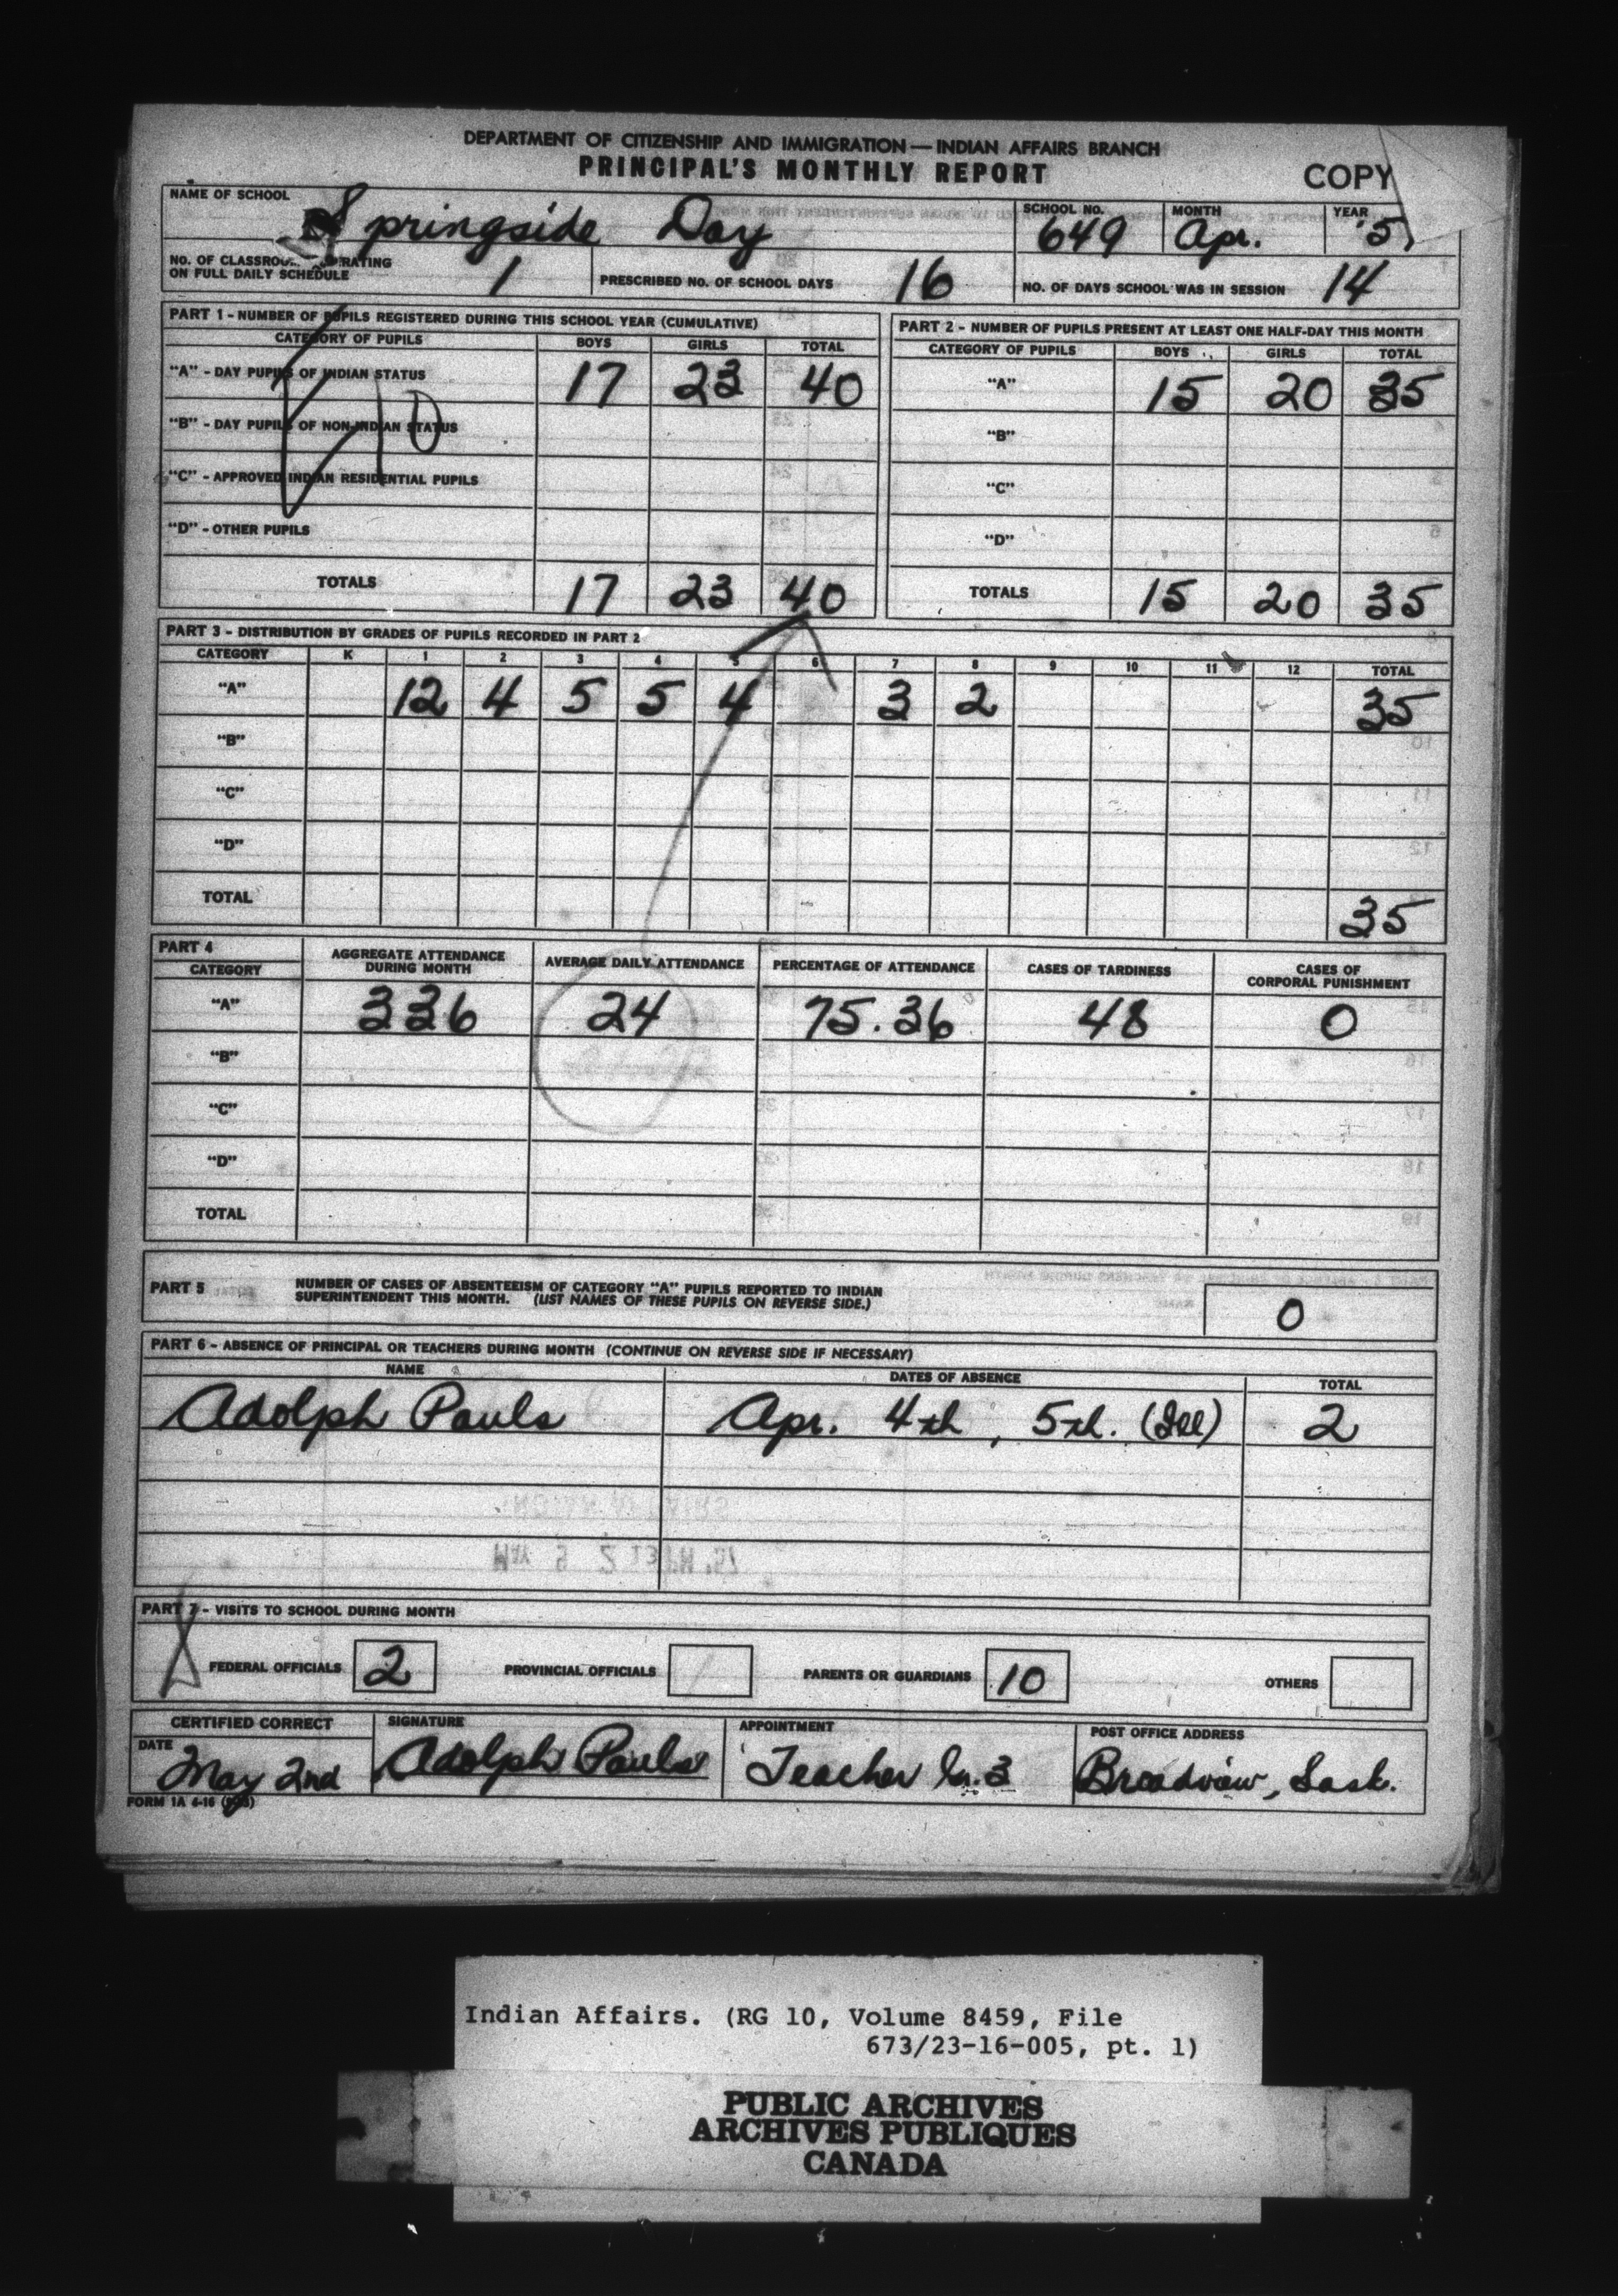 DEPARTMENT OF CITIZENSHIP AND IMMIGRATION — INDIAN AFFAIRS BRANCH
PRINCIPAL'S MONTHLY REPORT
COPY
NAME OF SCHOOL Springside Day SCHOOL NO. 649 MONTH Apr. YEAR '5
NO. OF CLASSROOMS OPERATING ON FULL DAILY SCHEDULE 1 PRESCRIBED NO. OF SCHOOL DAYS 16 NO. OF DAYS SCHOOL WAS IN SESSION 14
PART 1 - NUMBER OF PUPILS REGISTERED DURING THIS SCHOOL YEAR (CUMULATIVE)
CATEGORY OF PUPILS BOYS GIRLS TOTAL
"A" - DAY PUPILS OF INDIAN STATUS 17 23 40
"B" - DAY PUPILS OF NON-INDIAN STATUS
"C" - APPROVED INDIAN RESIDENTIAL PUPILS
"D" - OTHER PUPILS
TOTALS 17 23 40
PART 2 - NUMBER OF PUPILS PRESENT AT LEAST ONE HALF-DAY THIS MONTH
CATEGORY OF PUPILS BOYS GIRLS TOTAL
"A" 15 20 35
"B"
"C"
"D"
TOTALS 15 20 35
PART 3 - DISTRIBUTION BY GRADES OF PUPILS RECORDED IN PART 2
CATEGORY K 1 2 3 4 5 6 7 8 9 10 11 12 TOTAL
"A" 12 4 5 5 4 3 2 35
"B"
"C"
"D"
TOTAL 35
PART 4
CATEGORY AGGREGATE ATTENDANCE DURING MONTH AVERAGE DAILY ATTENDANCE PERCENTAGE OF ATTENDANCE CASES OF TARDINESS CASES OF CORPORAL PUNISHMENT
"A" 336 24 75.36 48 0
"B"
"C"
"D"
TOTAL
PART 5 NUMBER OF CASES OF ABSENTEEISM OF CATEGORY "A" PUPILS REPORTED TO INDIAN
SUPERINTENDENT THIS MONTH. (LIST NAMES OF THESE PUPILS ON REVERSE SIDE.) 0
PART 6 - ABSENCE OF PRINCIPAL OR TEACHERS DURING MONTH (CONTINUE ON REVERSE SIDE IF NECESSARY)
NAME DATES OF ABSENCE TOTAL
Adolph Pauls Apr. 4th, 5th. (Ill) 2
PART 7 - VISITS TO SCHOOL DURING MONTH
FEDERAL OFFICIALS 2 PROVINCIAL OFFICIALS PARENTS OR GUARDIANS 10 OTHERS
CERTIFIED CORRECT SIGNATURE APPOINTMENT POST OFFICE ADDRESS
DATE May 2nd Adolph Pauls Teacher Gr. 3 Broadview, Sask.
FORM 1A 4-16
Indian Affairs. (RG 10, Volume 8459, File
673/23-16-005, pt. 1)
PUBLIC ARCHIVES
ARCHIVES PUBLIQUES
CANADA